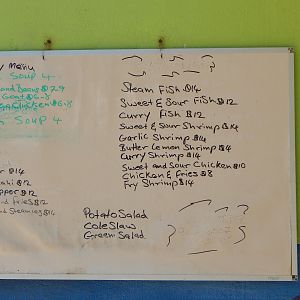 Menu
Soup 4
and Beans $7.9
Goat $6-8
Chicken $6-8
Soup 4
$14
$12
$12
$12
and Steaming $14
Steam Fish $14
Sweet & Sour Fish $12
Curry Fish $12
Sweet & Sour Shrimp $14
Garlic Shrimp $14
Butter Lemon Shrimp $14
Curry Shrimp $14
Sweet and Sour Chicken $10
Chicken & Fries $8
Fry Shrimp $14
Potato Salad
Cole Slaw
Green Salad